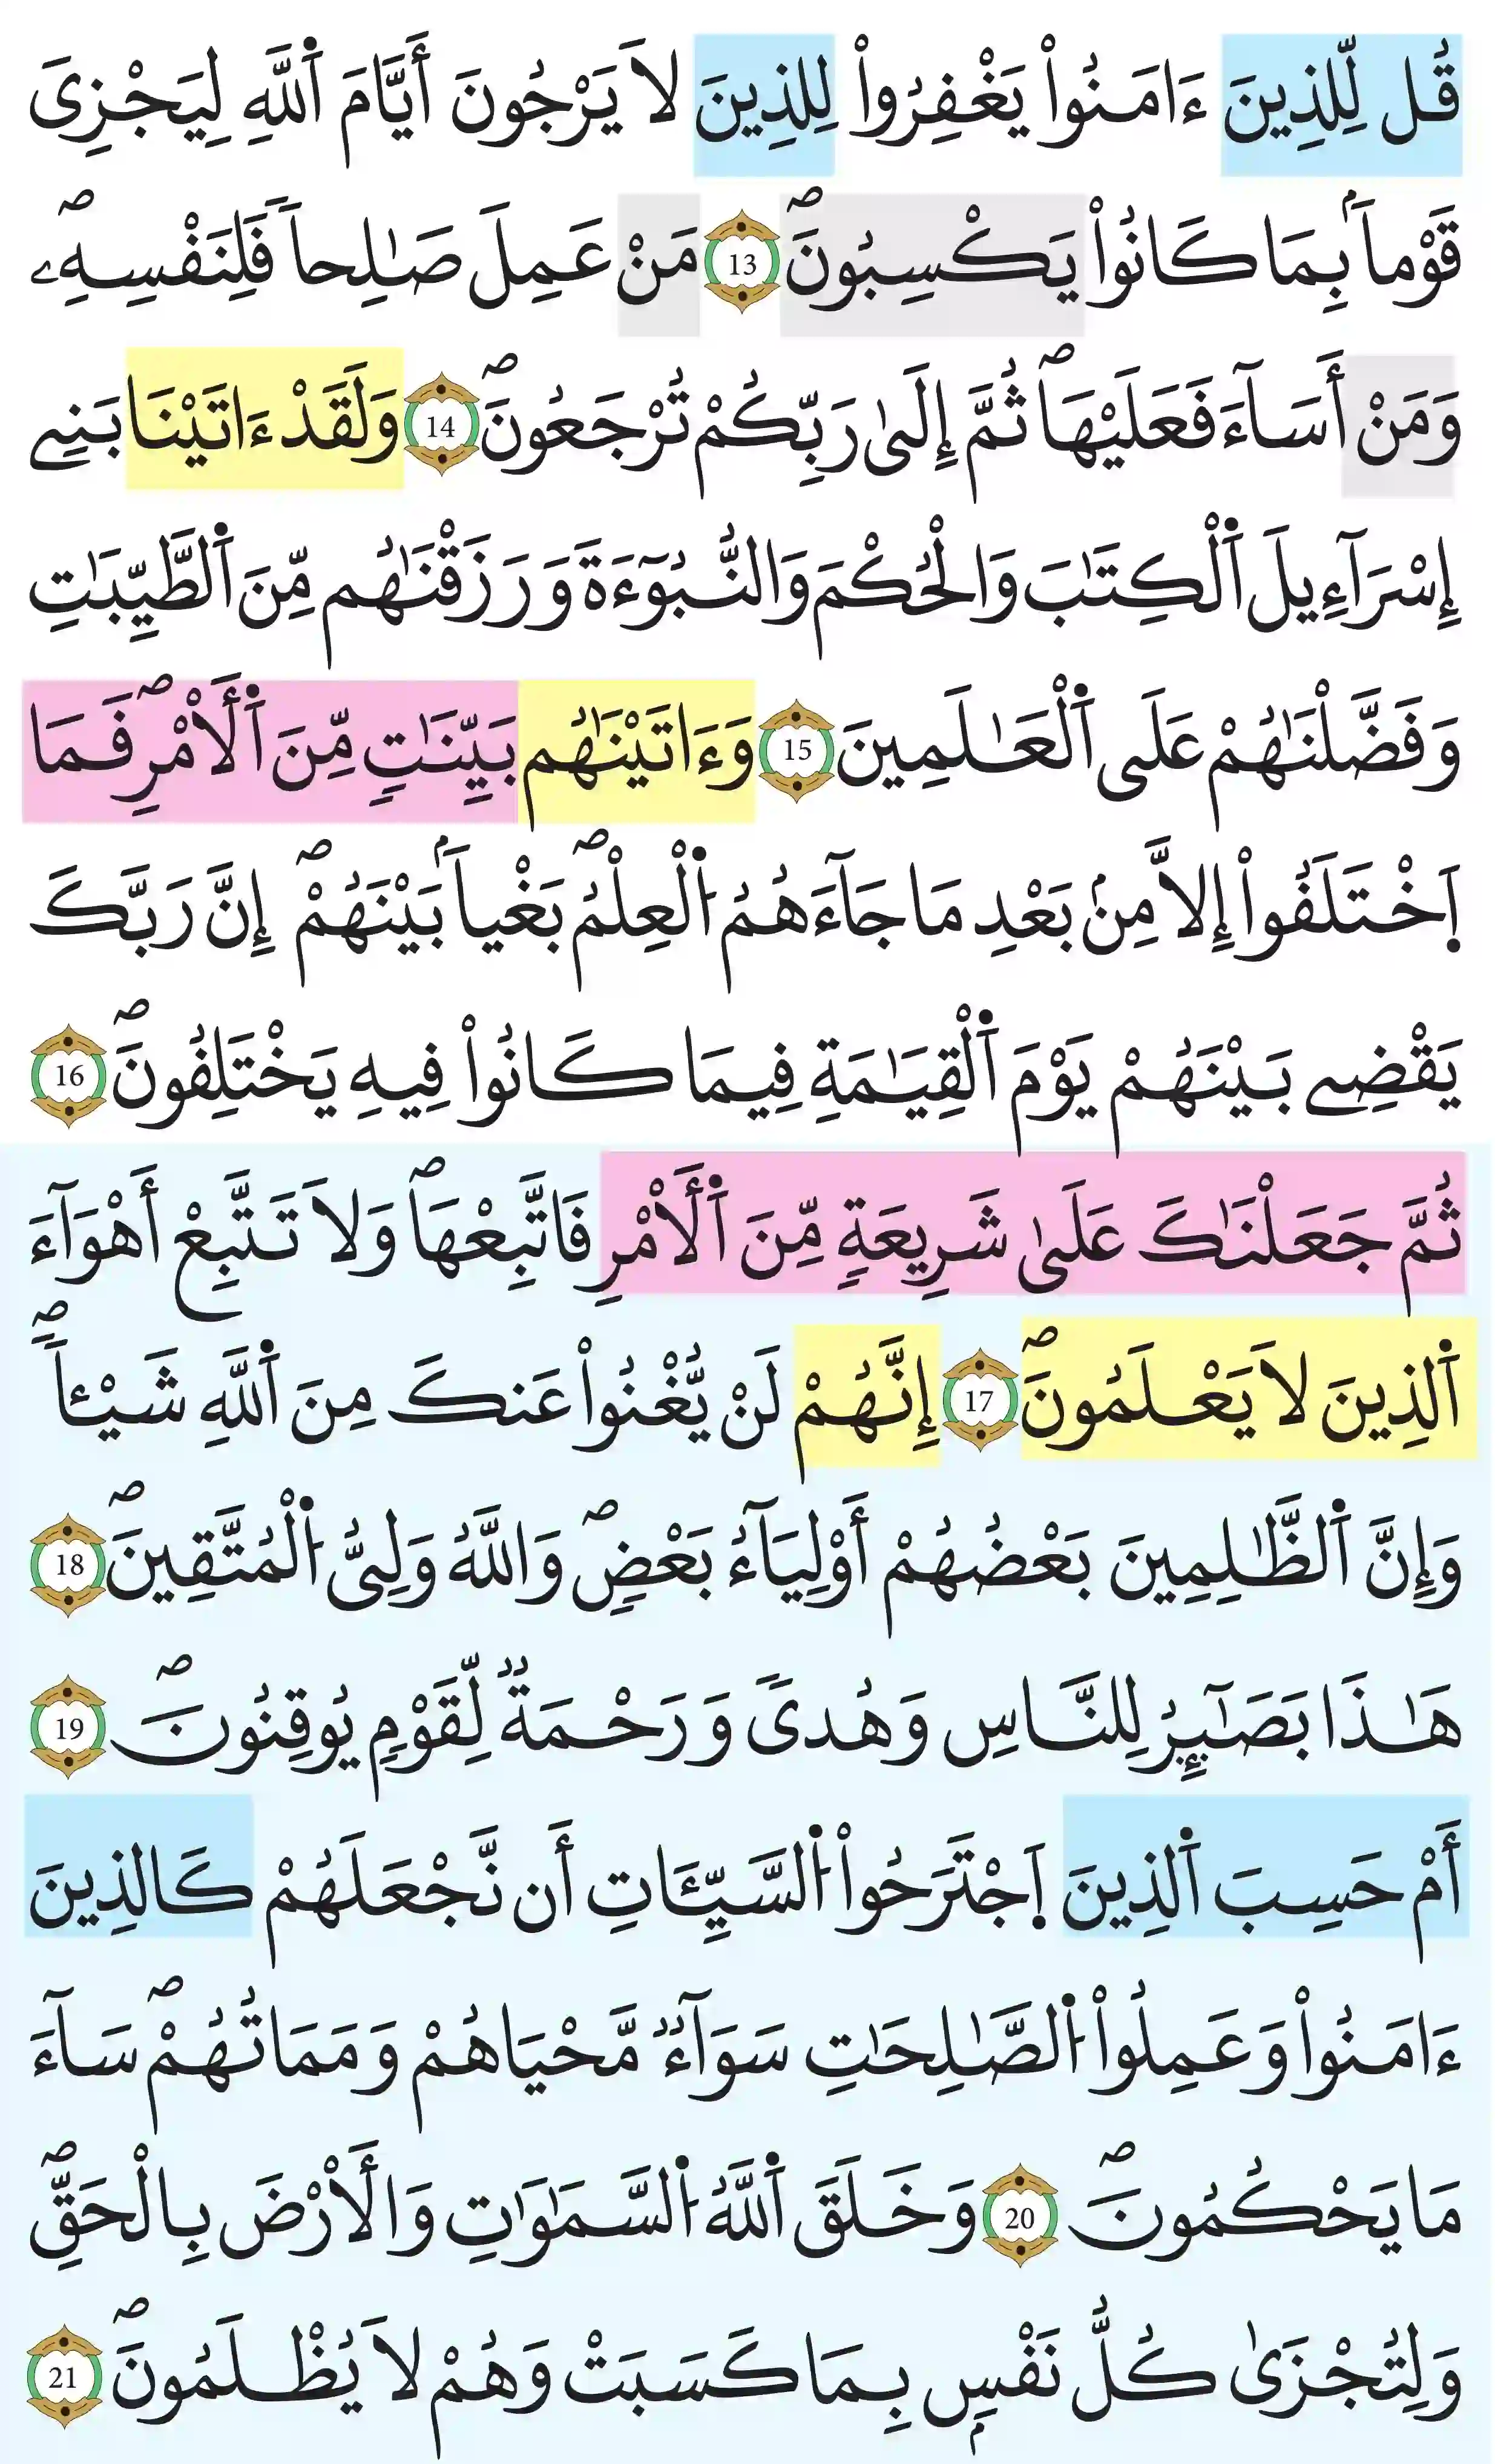 قُل لِّلذِينَ ءَامَنُواْ يَغْفِرُواْ لِلذِينَ لَا يَرْجُونَ أَيَّامَ اَ۬للَّهِ لِيَجْزِىَ
قَوْماَۢ بِمَا كَانُواْ يَكْسِبُونَۖ 13 مَنْ عَمِلَ صَٰلِحاٗ فَلِنَفْسِهِۦۖ
وَمَنْ أَسَآءَ فَعَلَيْهَاۖ ثُمَّ إِلَىٰ رَبِّكُمْ تُرْجَعُونَۖ 14 وَلَقَدْ ءَاتَيْنَا بَنِےٓ
إِسْرَآءِيلَ اَ۬لْكِتَٰبَ وَالْحُكْمَ وَالنُّبُوٓءَةَ وَرَزَقْنَٰهُم مِّنَ اَ۬لطَّيِّبَٰتِ
وَفَضَّلْنَٰهُمْ عَلَى اَ۬لْعَٰلَمِينَ 15 وَءَاتَيْنَٰهُم بَيِّنَٰتٖ مِّنَ اَ۬لْأَمْرِۖ فَمَا
اَ۪خْتَلَفُواْ إِلَّا مِنۢ بَعْدِ مَا جَآءَهُمُ اُ۬لْعِلْمُۖ بَغْياَۢ بَيْنَهُمْۖ إِنَّ رَبَّكَ
يَقْضِے بَيْنَهُمْ يَوْمَ اَ۬لْقِيَٰمَةِ فِيمَا كَانُواْ فِيهِ يَخْتَلِفُونَۖ 16
ثُمَّ جَعَلْنَٰكَ عَلَىٰ شَرِيعَةٖ مِّنَ اَ۬لْأَمْرِ فَاتَّبِعْهَاۖ وَلَا تَتَّبِعْ أَهْوَآءَ
اَ۬لذِينَ لَا يَعْلَمُونَۖ 17 إِنَّهُمْ لَنْ يُّغْنُواْ عَنكَ مِنَ اَ۬للَّهِ شَيْـٔاٗۖ
وَإِنَّ اَ۬لظَّٰلِمِينَ بَعْضُهُمْ أَوْلِيَآءُ بَعْضٖۖ وَاللَّهُ وَلِىُّ اُ۬لْمُتَّقِينَۖ 18
هَٰذَا بَصَٰٓئِرُ لِلنَّاسِ وَهُدىٗ وَرَحْمَةٞ لِّقَوْمٖ يُوقِنُونَۖ 19
أَمْ حَسِبَ اَ۬لذِينَ اَ۪جْتَرَحُواْ اُ۬لسَّيِّـَٔاتِ أَن نَّجْعَلَهُمْ كَالذِينَ
ءَامَنُواْ وَعَمِلُواْ اُ۬لصَّٰلِحَٰتِ سَوَآءٞ مَّحْيَاهُمْ وَمَمَاتُهُمْۖ سَآءَ
مَا يَحْكُمُونَۖ 20 وَخَلَقَ اَ۬للَّهُ اُ۬لسَّمَٰوَٰتِ وَالْأَرْضَ بِالْحَقِّۖ
وَلِتُجْزَىٰ كُلُّ نَفْسِۢ بِمَا كَسَبَتْ وَهُمْ لَا يُظْلَمُونَۖ 21